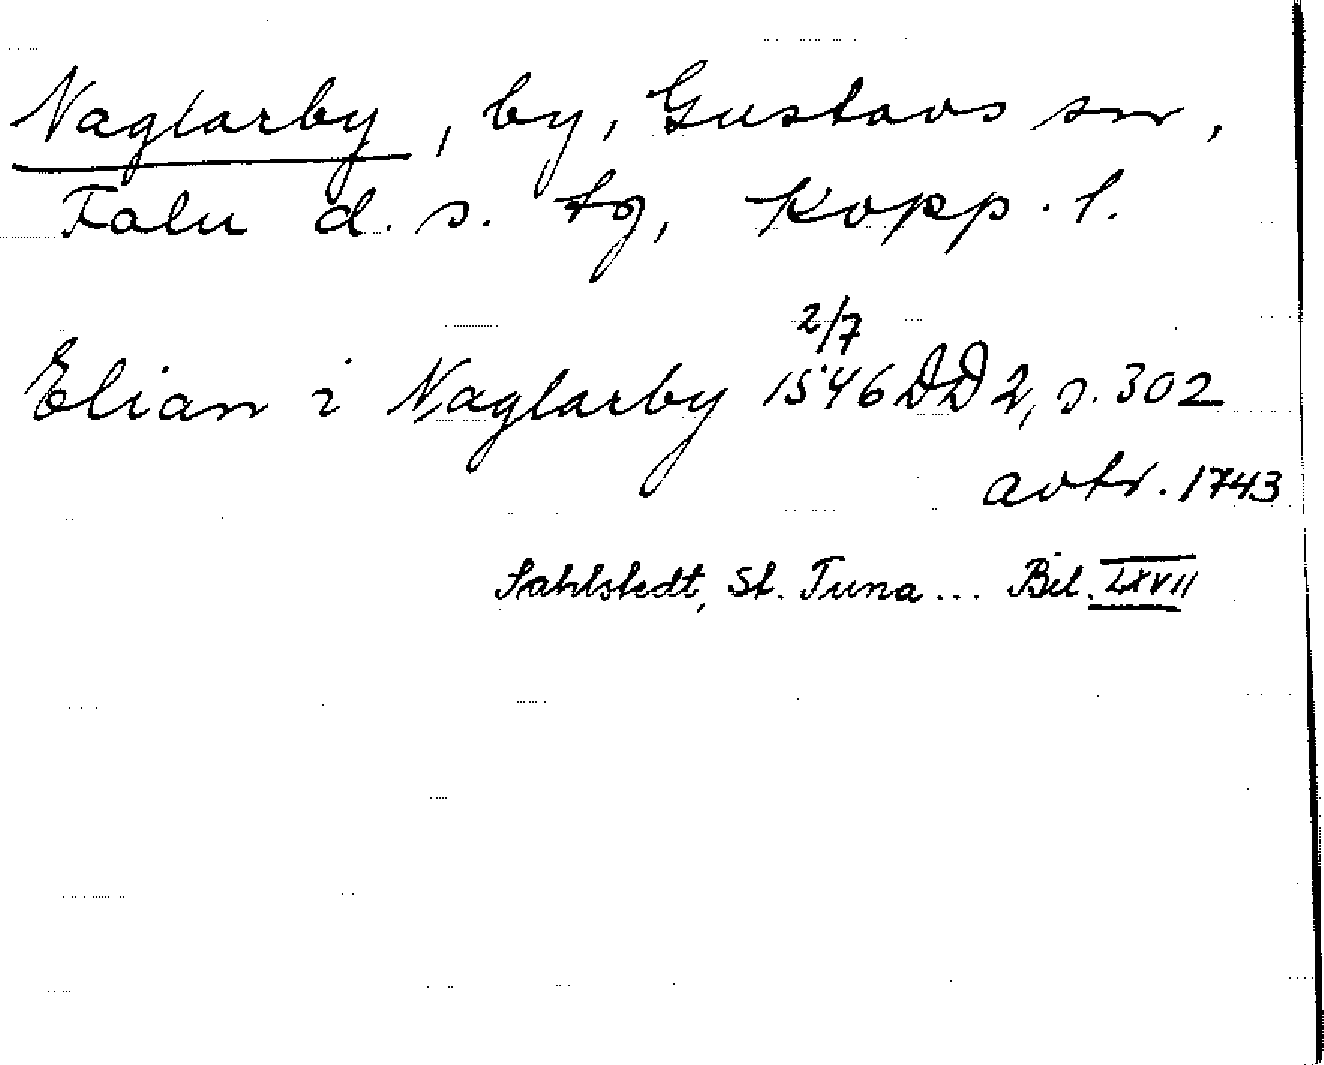 Naglarby, by, Gustavs sn,
Falu d. s. tg, Kopp. l.
Elian i Naglarby 2/7 1546 DD 2, s. 302
avtr. 1743
Sahlstedt, St. Tuna ... Bil. LXVII